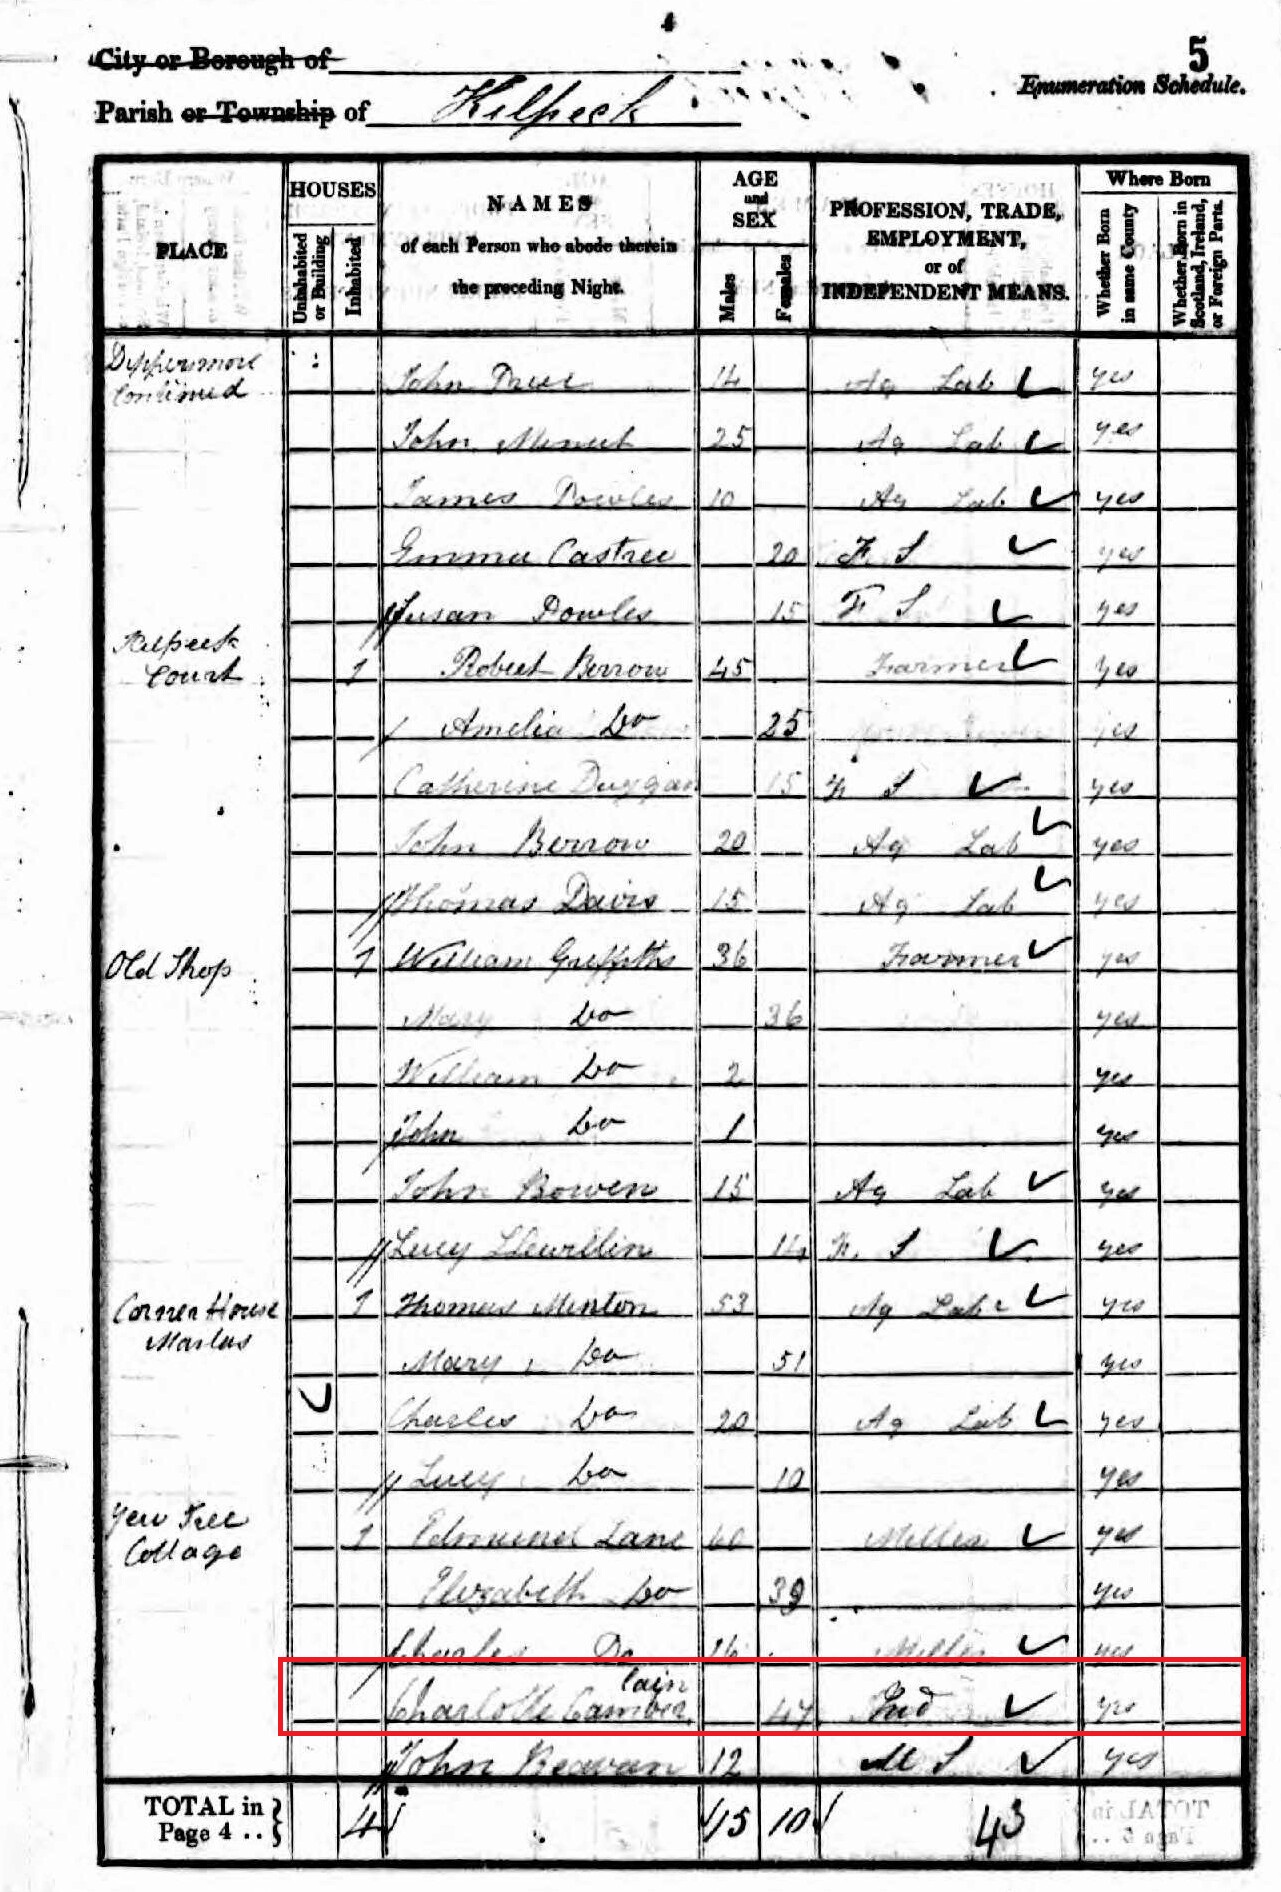 4
5
City or Borough of
Enumeration Schedule.
Parish or Township of Kilpeck
PLACE
HOUSES
Uninhabited or Building
Inhabited
NAMES
of each Person who abode therein
the preceding Night.
AGE
and
SEX
Males
Females
PROFESSION, TRADE,
EMPLOYMENT,
or of
INDEPENDENT MEANS.
Where Born
Whether Born in same County
Whether Born in Scotland, Ireland, or Foreign Parts.
Dippersmore
Continued
John 14 Ag Lab yes
John 25 Ag Lab yes
James Powles 10 Ag Lab yes
Emma Castree 20 F S yes
Susan Powles 15 F S yes
Kilpeck
Court 1 Robert Berrow 45 Farmer yes
Amelia Do 25 yes
Catherine Duggan 15 F S yes
John Berrow 20 Ag Lab yes
Thomas Davis 15 Ag Lab yes
Old Shop 1 William Griffiths 36 Farmer yes
Mary Do 36 yes
William Do 2 yes
John Do 1 yes
John Bowen 15 Ag Lab yes
Lucy Llewellin 14 F. S yes
Corner House 1 Thomas Minton 53 Ag Lab yes
Marlas
Mary Do 51 yes
Charles Do 20 Ag Lab yes
Lucy Do 10 yes
Yew Tree
Cottage 1 Edmund Lane 60 Miller yes
Elizabeth Do 39 yes
Charles Do 16 Miller yes
lain
Charlotte Camber 47 Ind yes
John Beavan 12 M S yes
TOTAL in
Page 4 .. } 4 15 10 43